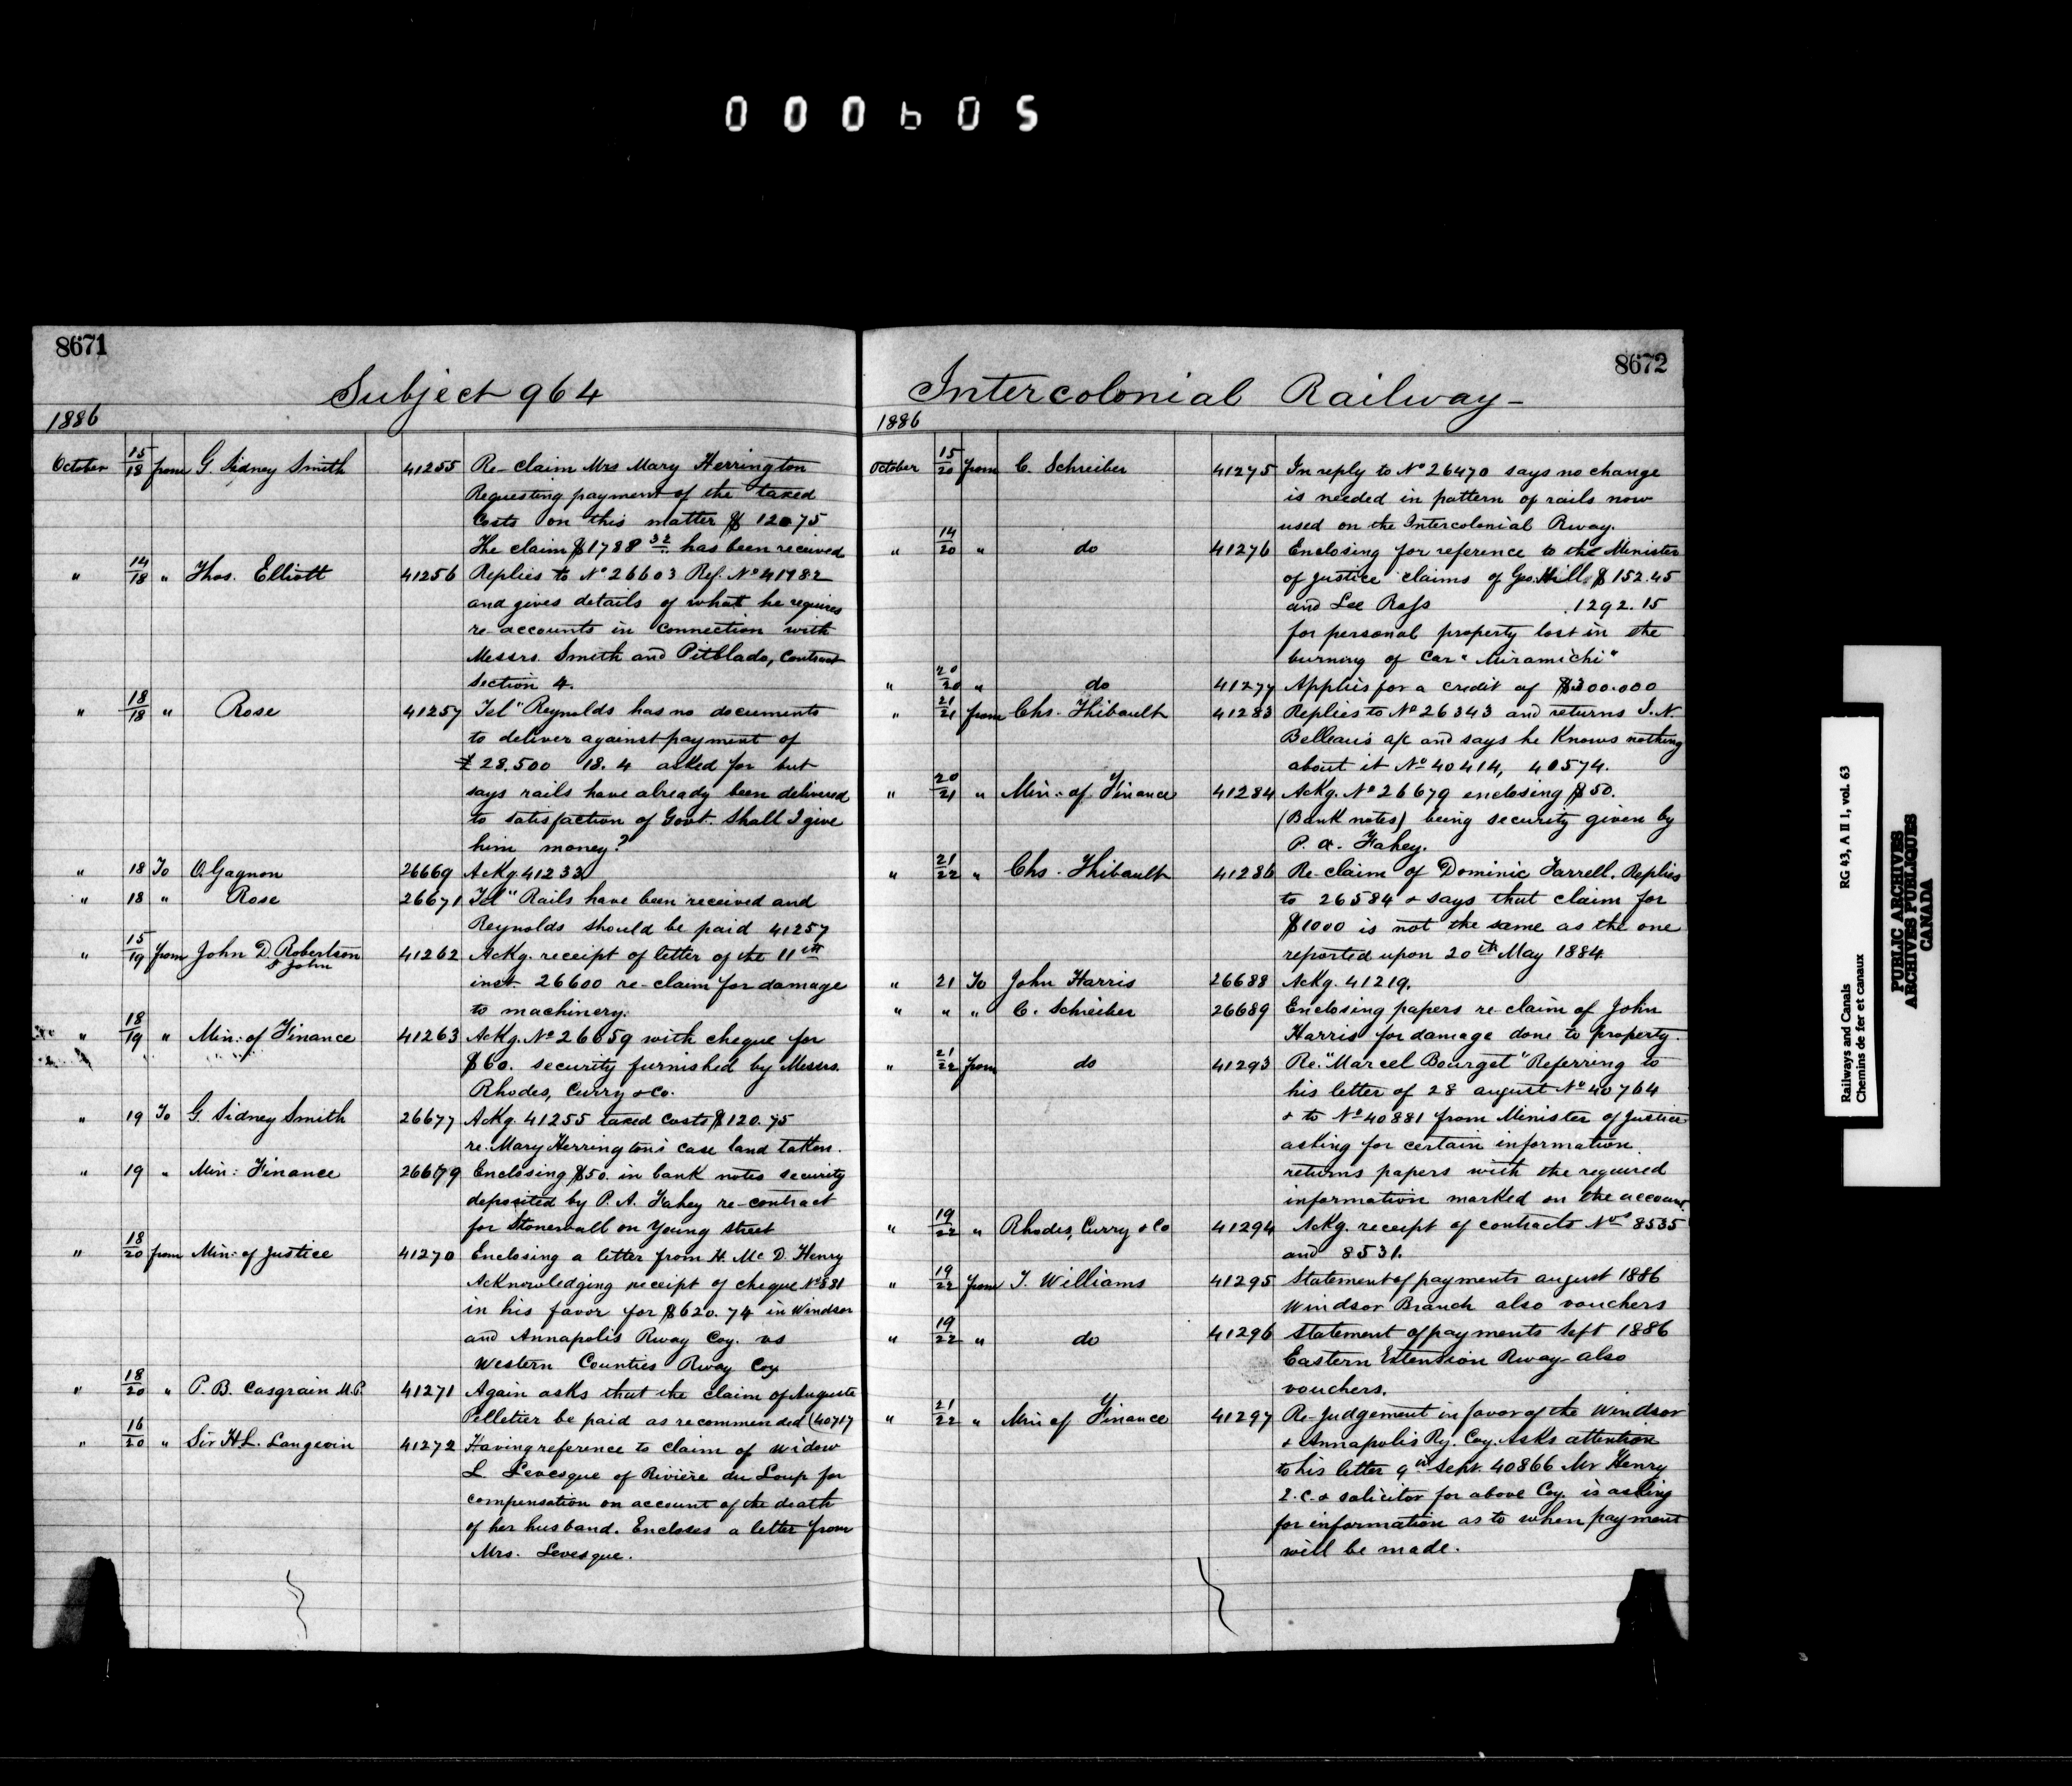 000605
8671
Subject 964
1886
October 15/18 from G. Sidney Smith 41255 Re-claim Mrs Mary Herrington
Requesting payment of the taxed
Costs on this matter $ 120 75
The claim $1788 32 has been received
" 14/18 " Thos. Elliott 41256 Replies to No 26603 Ref. No 41182
and gives details of what he requires
re-accounts in connection with
Messrs. Smith and Pitblado, Contract
Section 4.
" 18/18 " Rose 41257 Tel "Reynolds has no documents
to deliver against payment of
£ 28.500 18. 4 asked for but
says rails have already been delivered
to satisfaction of Govt. Shall I give
him money?
" 18 To O. Gagnon 26669 Ackg. 41233
" 18 " Rose 26671 Tel "Rails have been received and
Reynolds should be paid 41257
" 15/19 from John D. Robertson 41262 Ackg. receipt of letter of the 11th
St John
inst 26600 re-claim for damage
to machinery.
" 18/19 " Min: of Finance 41263 Ackg. No 26659 with cheque for
$60. security furnished by Messrs.
Rhodes, Curry & Co.
" 19 To G. Sidney Smith 26677 Ackg. 41255 taxed Costs $120.75
re. Mary Herrington's case land taken.
" 19 " Min: Finance 26679 Enclosing $50. in bank notes security
deposited by P. A. Fahey re-contract
for Stonewall on Young Street
" 18/20 from Min: of Justice 41270 Enclosing a letter from H. Mc D. Henry
Acknowledging receipt of cheque No 881
in his favor for $620.74 in Windsor
and Annapolis Rway Coy. vs
Western Counties Rway Coy
" 18/20 " P. B. Casgrain M.P. 41271 Again asks that the claim of Auguste
Pelletier be paid as recommended (40717
" 16/20 " Sir H.L. Langevin 41272 Having reference to claim of Widow
L. Levesque of Rivière du Loup for
compensation on account of the death
of her husband. Encloses a letter from
Mrs. Levesque.
8672
Intercolonial Railway-
1886
October 15/20 from C. Schreiber 41275 In reply to No 26470 says no change
is needed in pattern of rails now
used on the Intercolonial Rway.
" 14/20 " do 41276 Enclosing for reference to the Minister
of Justice claims of Geo. Hill $152.45
and Lee Ross 1292.15
for personal property lost in the
burning of Car "Miramichi"
" 20/20 " do 41277 Applies for a credit of $300.000
" 21/21 from Chs. Thibault 41283 Replies to No 26343 and returns I. N.
Belleau's a/c and says he Knows nothing
about it No 40414, 40574.
" 20/21 " Min: of Finance 41284 Ackg. No 26679 enclosing $50.
(Bank notes) being security given by
P. A. Fahey.
" 21/22 " Chs. Thibault 41286 Re-claim of Dominic Farrell. Replies
to 26584 & says that claim for
$1000 is not the same as the one
reported upon 20th May 1884
" 21 To John Harris 26688 Ackg. 41219.
" " " C. Schreiber 26689 Enclosing papers re claim of John
Harris for damage done to property.
" 21/22 from do 41293 Re. "Marcel Bourget" Referring to
his letter of 28 August No 40764
& to No 40881 from Minister of Justice
asking for certain information.
returns papers with the required
information marked on the account.
" 19/22 " Rhodes, Curry & Co 41294 Ackg. receipt of contracts Nos 8535
and 8531.
" 19/22 from T. Williams 41295 Statement of payments August 1886
Windsor Branch also vouchers
" 19/22 " do 41296 Statement of payments Sept 1886
Eastern Extention Rway also
vouchers.
" 21/22 " Min of Finance 41297 Re-Judgement in favor of the Windsor
& Annapolis Ry. Coy. Asks attention
to his letter 9th Sept. 40866 Mr Henry
Q.C. & solicitor for above Coy. is asking
for information as to when payment
will be made.
Railways and Canals RG 43, A II 1, vol. 63
Chemins de fer et canaux
PUBLIC ARCHIVES
ARCHIVES PUBLIQUES
CANADA